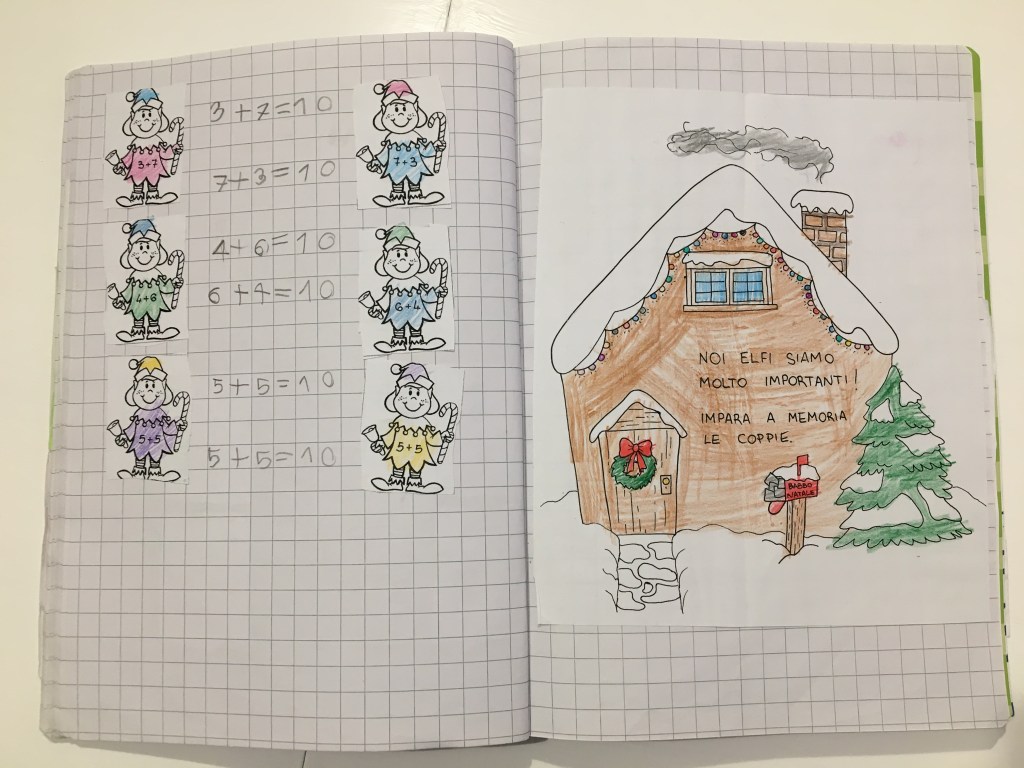 3+7
3+7=10
7+3
7+3=10
4+6
4+6=10
6+4
6+4=10
5+5
5+5=10
5+5
5+5=10
NOI ELFI SIAMO
MOLTO IMPORTANTI!
IMPARA A MEMORIA
LE COPPIE.
BABBO
NATALE